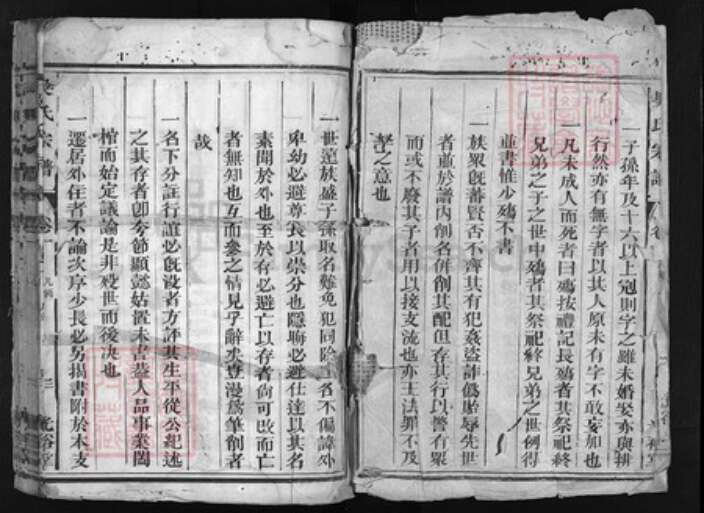 一子孫年及十六以上冠則字之雖未婚娶亦與排
行然亦有無字者以其人原未有字不敢妄加也
一凡未成人而死者曰殤按禮記長殤者其祭祀終
兄弟之子之世中殤者其祭祀終兄弟之世例得
並書惟少殤不書
一族眾旣蕃賢否不齊其有犯姦盜詐僞貽辱先世
者並於譜內削名併削其配但存其行以警有眾
而或不廢其子者用以接支流也亦王法罪不及
孥之意也
一世遠族盛子孫取名難免犯同除 名不偏諱外
卑幼必避尊長以崇分也隱晦必避仕達以其名
素聞於外也至於存必避亡以存者尚可改而亡
者無知也互而參之情見乎辭求豈漫爲筆削者
哉
一名下分註行誼必旣沒者方評其生平從公紀述
之其存者卽今節顯懿姑置未書葢人品事業闔
棺而始定議論是非殁世而後決也
一遷居外住者不論次序少長必另揭書附於本支
吳氏宗譜
卷
凡例
三
吳氏宗譜
卷